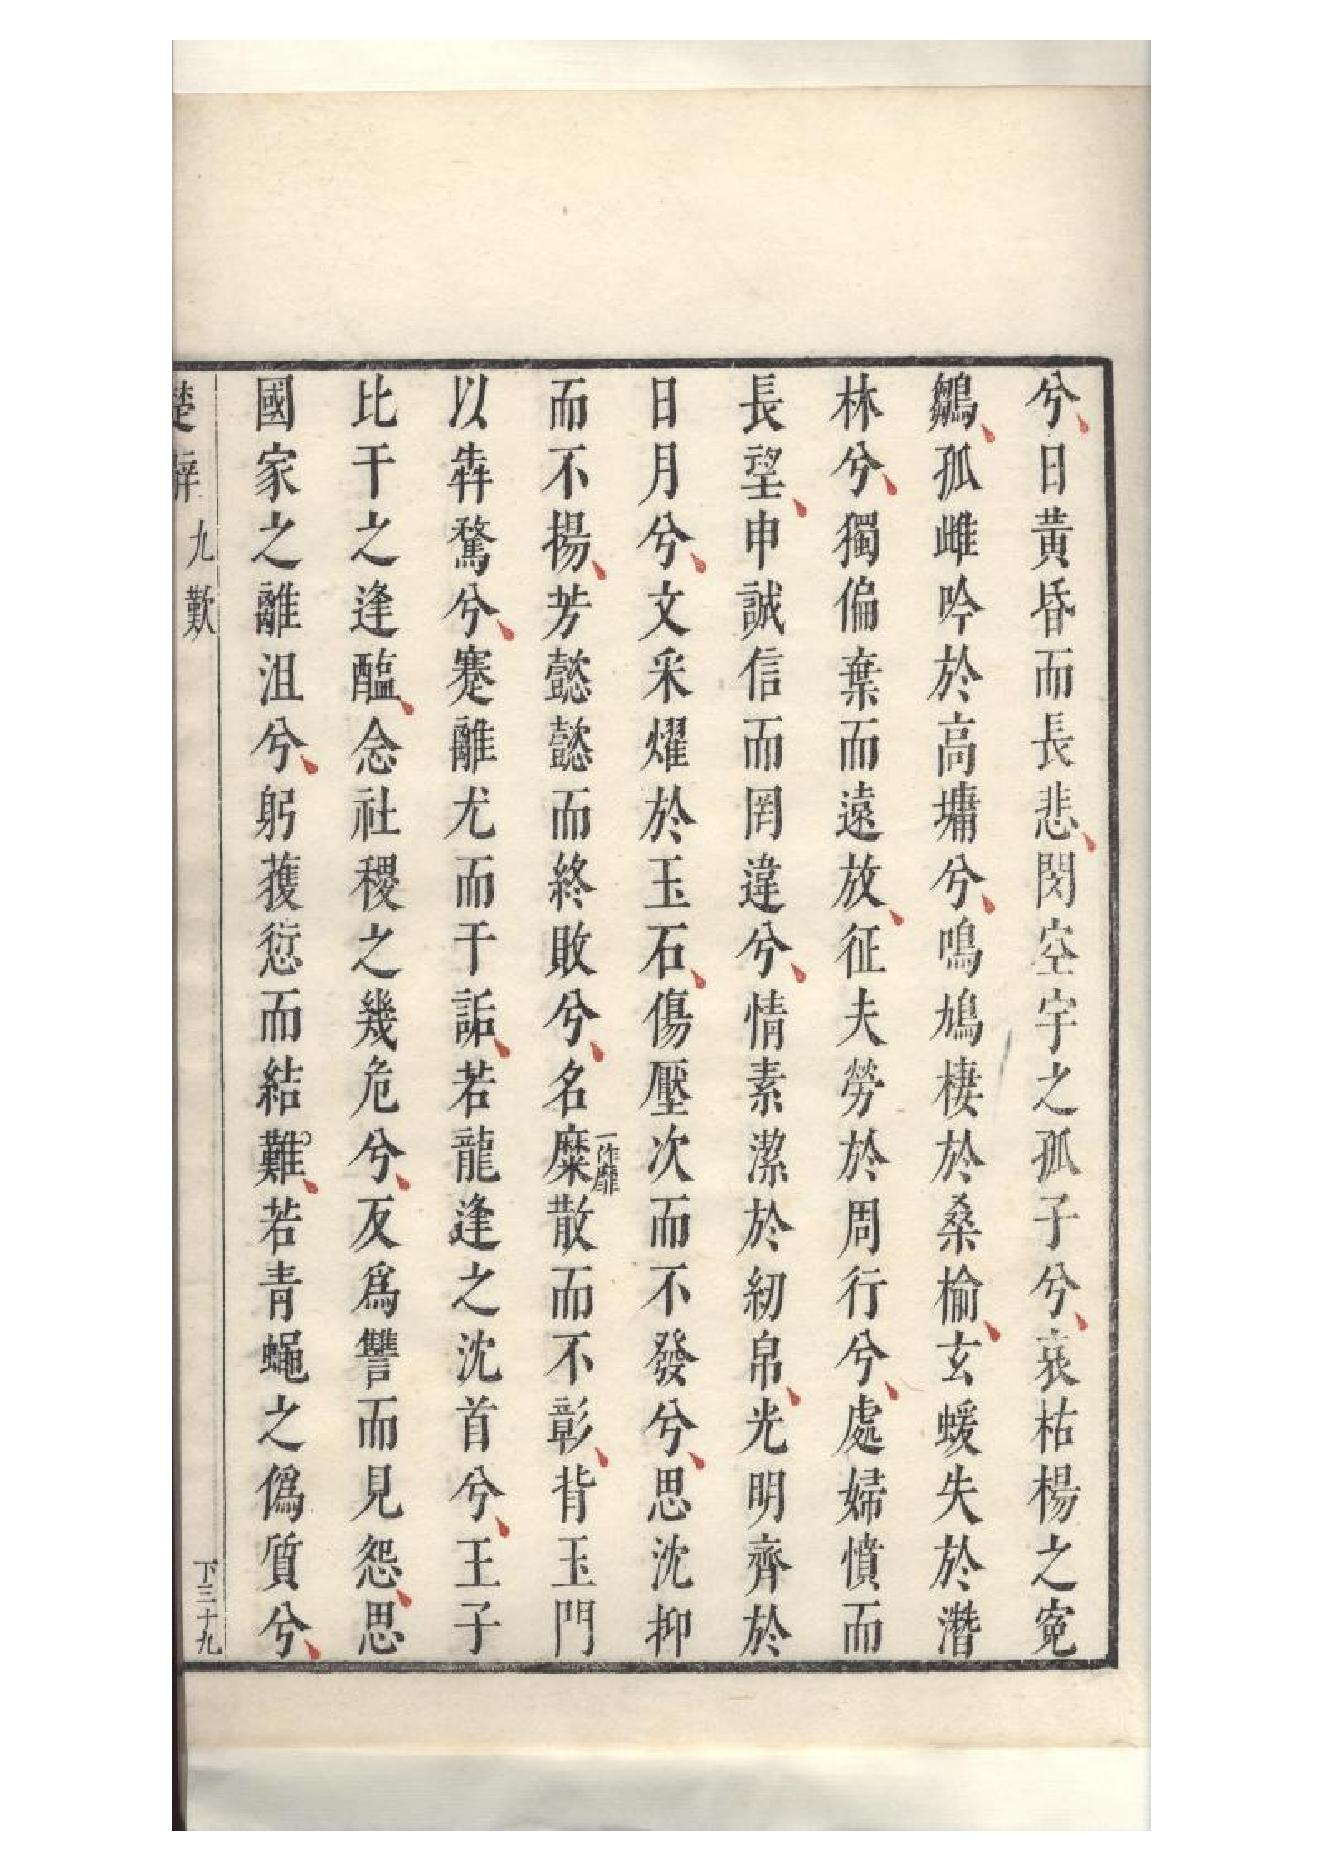 兮日黄昏而長悲閔空宇之孤子兮哀枯楊之寃
鶵孤雌吟於高墉兮鳴鳩棲於桑榆玄蝯失於潛
林兮獨偏棄而遠放征夫勞於周行兮處婦憤而
長望申誠信而罔違兮情素潔於紉帛光明齊於
日月兮文采燿於玉石傷壓次而不發兮思沈抑
而不揚芳懿懿而終敗兮名糜一作靡散而不彰背玉門
以犇騖兮蹇離尤而干詬若龍逢之沈首兮王子
比干之逢醢念社稷之幾危兮反爲讐而見怨思
國家之離沮兮躬獲愆而結難若青蠅之僞質兮
楚辭 九歎 下三十九